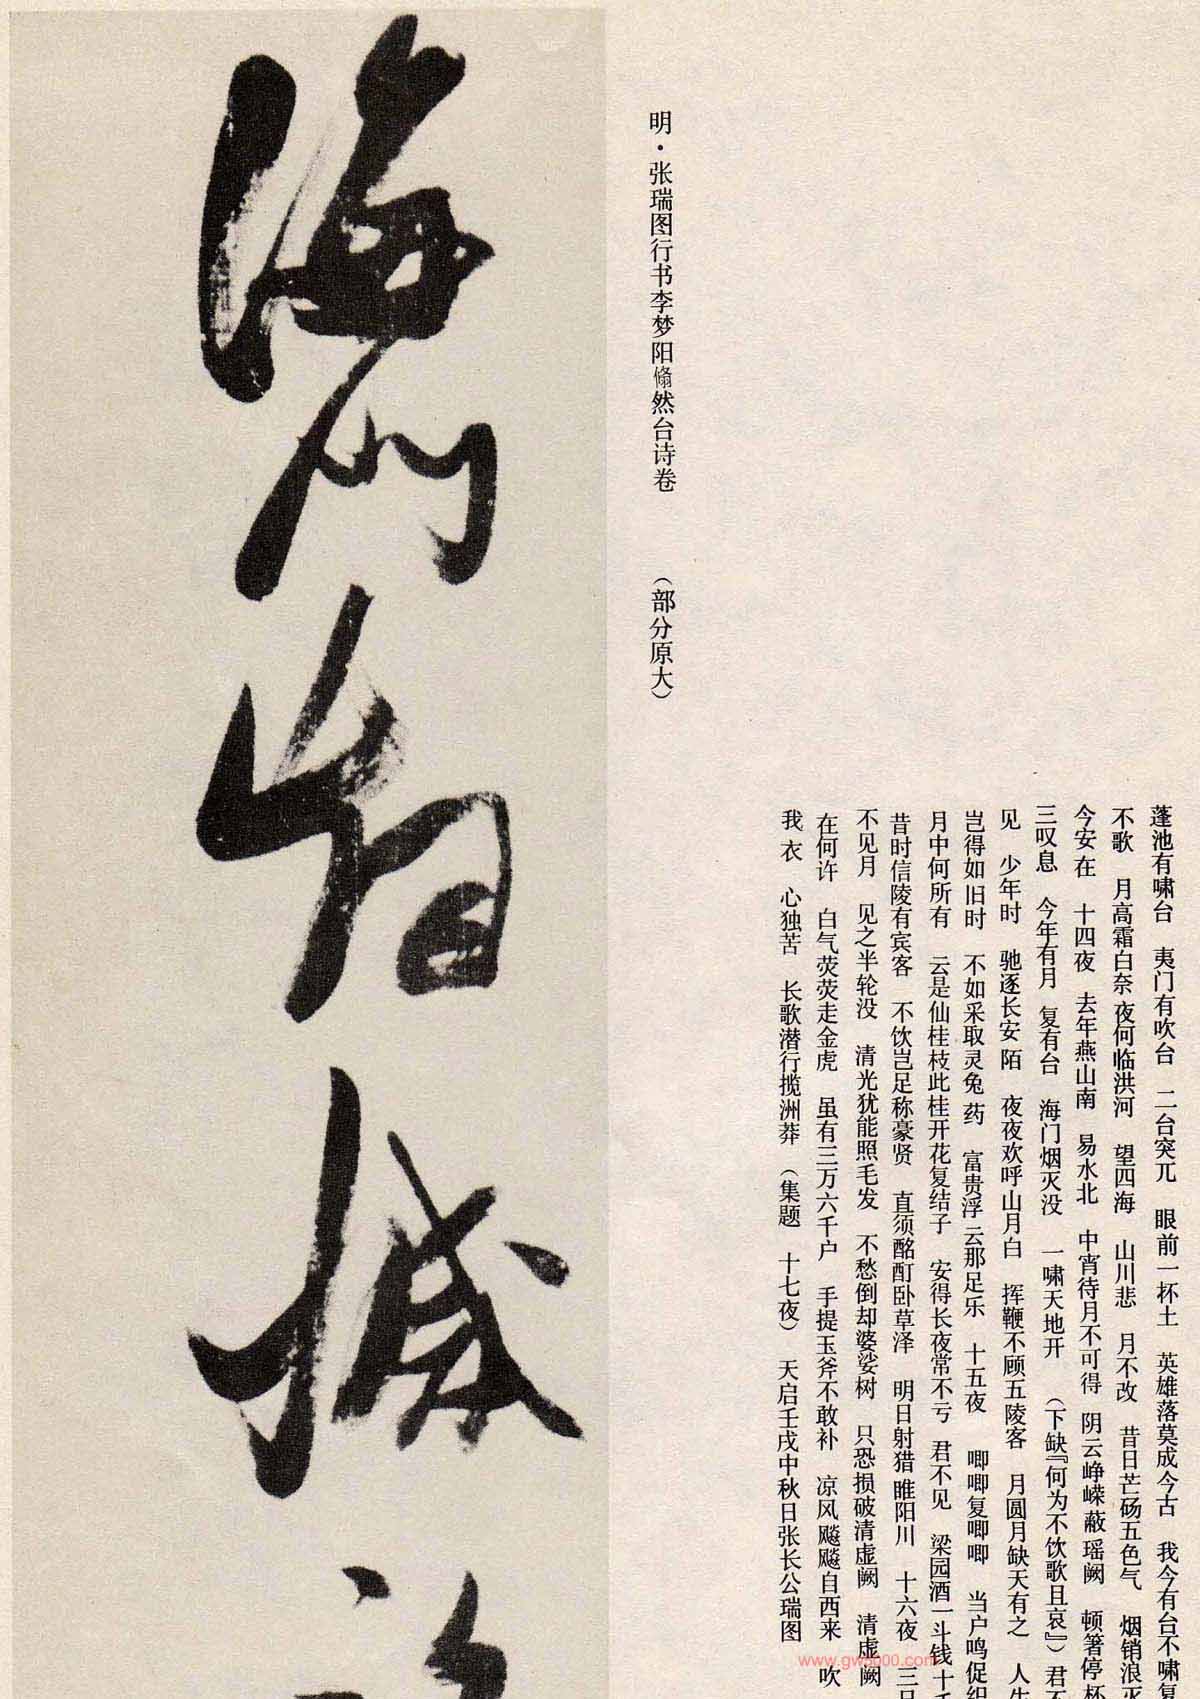 蓬池有啸台　夷门有吹台　二台突兀　眼前一杯土　英雄落莫成今古　我今有台不啸复
不歌　月高霜白奈夜何临洪河　望四海　山川悲　月不改　昔日芒砀五色气　烟销浪灭
今安在　十四夜　去年燕山南　易水北　中宵待月不可得　阴云峥嵘蔽瑶阙　顿箸停杯
三叹息　今年有月　复有台　海门烟灭没　一啸天地开　（下缺『何为不饮歌且哀』）君不
见　少年时　驰逐长安陌　夜夜欢呼山月白　挥鞭不顾五陵客　月圆月缺天有之　人生
岂得如旧时　不如采取灵兔药　富贵浮云那足乐　十五夜　唧唧复唧唧　当户鸣促织
月中何所有　云是仙桂枝此桂开花复结子　安得长夜常不亏　君不见　梁园酒一斗钱十千
昔时信陵有宾客　不饮岂足称豪贤　直须酩酊卧草泽　明日射猎睢阳川　十六夜　三日
不见月　见之半轮没　清光犹能照毛发　不愁倒却婆娑树　只恐损破清虚阙　清虚阙
在何许　白气荧荧走金虎　虽有三万六千户　手提玉斧不敢补　凉风飚飚自西来　吹
我衣　心独苦　长歌潜行揽洲莽　（集题　十七夜）　天启壬戌中秋日张长公瑞图
明·张瑞图行书李梦阳翛然台诗卷　（部分原大）
海门烟灭
www.gw5000.com